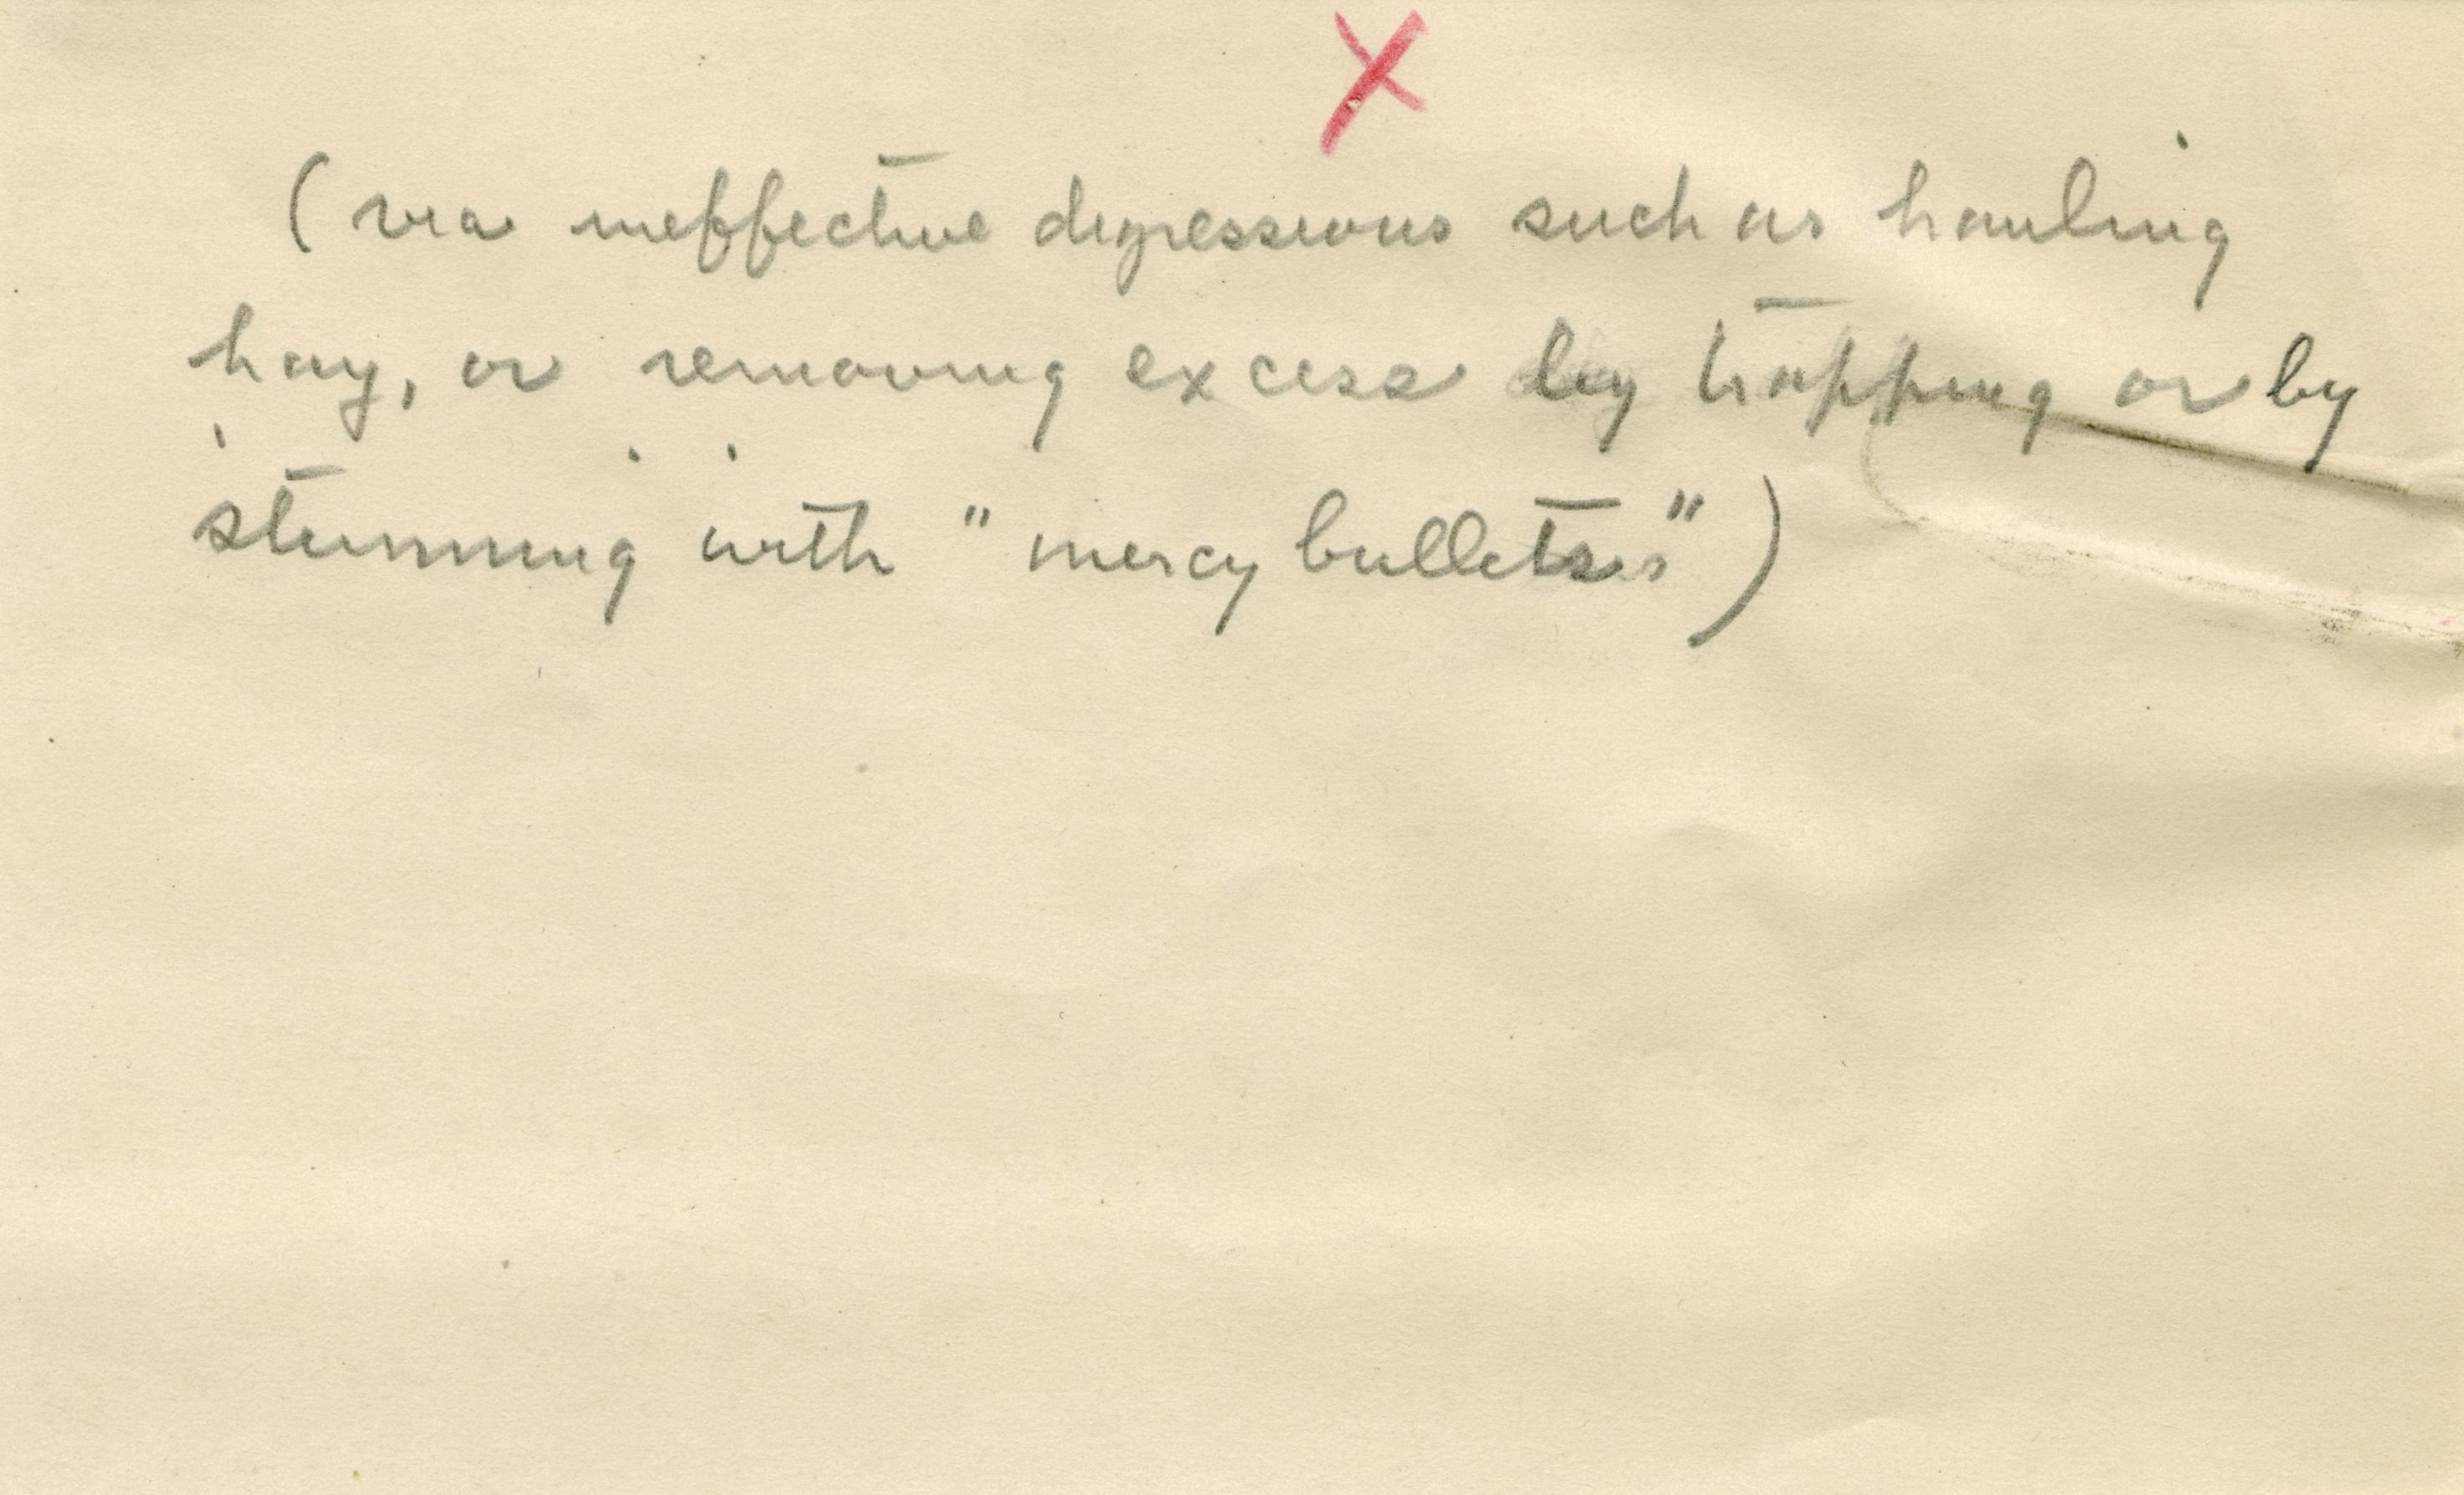 X
(via ineffective digressions such as hauling
hay, or removing excess by trapping or by
stunning with "mercy bullets")